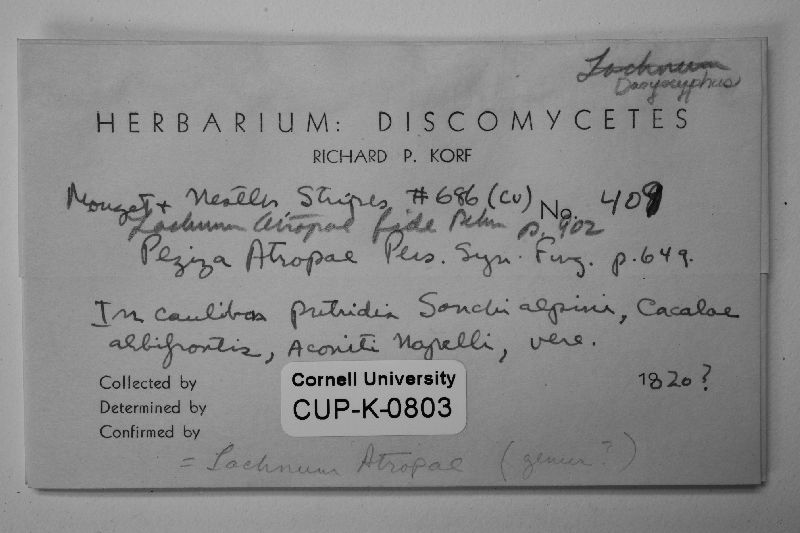 Lachnum
Dasyscyphus
HERBARIUM: DISCOMYCETES
RICHARD P. KORF
Mouget + Nestler Stirpes #686 (CU) No. 409
Lachnum Atropae fide Rehm p. 902
Peziza Atropae Pers. Syn. Fung. p. 649.
In caulibus putridis Sonchi alpini, Cacalae
albifrontis, Aconiti Napelli, vere.
Collected by 1820?
Determined by
Confirmed by
Cornell University
CUP-K-0803
= Lachnum Atropae (genus?)